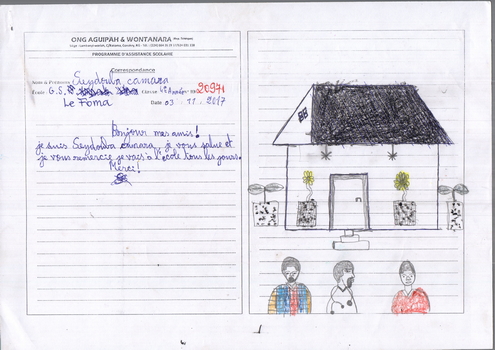 ONG AGUIPAH & WONTANARA
PROGRAMME D'ASSISTANCE SCOLAIRE
Correspondance
Nom & Prénoms Seydouba camara
École G.S. Classe 4e Année 20971
Le Foma Date 03 . 11 . 2017
Bonjour mes amis!
je suis Seydouba camara je vous salue et
je vous remercie je vais à l'école tous les jours.
Merci!